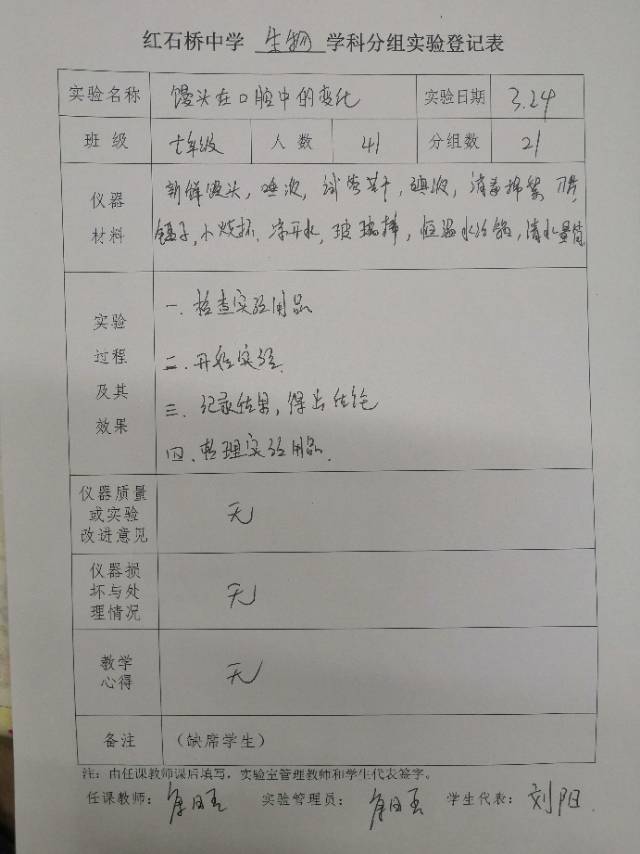 红石桥中学 生物 学科分组实验登记表
实验名称 馒头在口腔中的变化 实验日期 3.24
班 级 七年级 人 数 41 分组数 21
仪器 材料 新鲜馒头,唾液,试管若干,碘液,消毒棉絮 刀片,
镊子,小烧杯,凉开水,玻璃棒,恒温水浴锅,清水量筒
实验 过程 及其 效果
一.检查实验用品
二.开始实验.
三.记录结果,得出结论
四.整理实验用品.
仪器质量
或实验 无
改进意见
仪器损
坏与处 无
理情况
教学 无
心得
备注 (缺席学生)
注:由任课教师课后填写,实验室管理教师和学生代表签字。
任课教师: 实验管理员: 学生代表:刘阳